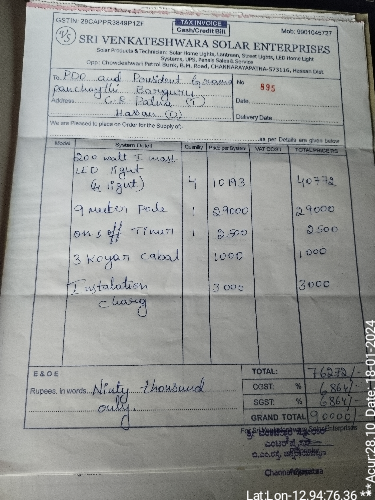 GSTIN: 29CAPPR3849P1ZF
TAX INVOICE
Cash/Credit Bill
Mob: 9901046727
SRI VENKATESHWARA SOLAR ENTERPRISES
Solar Products & Technician: Solar Home Lights, Lanterns, Street Lights, LED Home Light
Systems, UPS, Panels Sales & Service
Opp: Chowdeshwari Petrol Bunk, B.M. Road, CHANNARAYAPATNA-573116, Hassan Dist.
To PDO and President Grama No 895
panchaythi Baguru
Address C R Patna (T) Date
Hassan (D) Delivery Date
We are Pleased to place on Order for the Supply of
as per Details are given below
Model System Detail Quantity Price per System VAT COST TOTAL PRICE RS
200 watt
LED light
(4 light) 4 10193 40772
9 meter Pole 1 29000 29000
on & off Timer 1 2500 2500
3 1000 1000
Installation 3000 3000
charg
E & O E TOTAL: 76272/-
CGST: % 6864/-
Rupees, in words Ninty thousand SGST: % 6864/-
only GRAND TOTAL 90000/-
For Sri Venkateshwara Solar Enterprises
Lat:Lon-12.94:76.36 ***Acur:28.10 Date:-18-01-2024